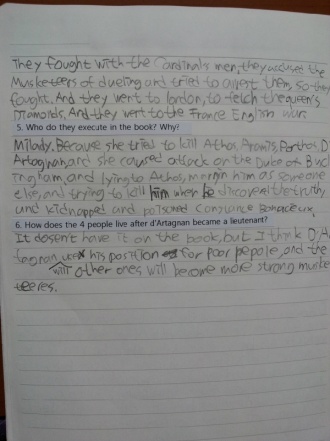 They fought with the Cardinals men, they accused the
Musketeers of dueling and tried to arrest them, so they
fought. And they went to london, to fetch the queen's
Diamonds, And they went to the France English war.
5. Who do they execute in the book? Why?
Milady. Because she tried to kill Athos, Aramis, Porthos, D
Artaghan, and she caused attack on the Duke of Buc
ingham, and lying to Athos, him as someone
else, and trying to kill him when he discovered the truth,
und kidnapped and poisoned Constance
6. How does the 4 people live after d'Artagnan became a lieutenant?
It doesen't have it on the book, but I think D'Ar
tagnan his position for poor pepole, and the
will other ones will become more strong muske
teeres.